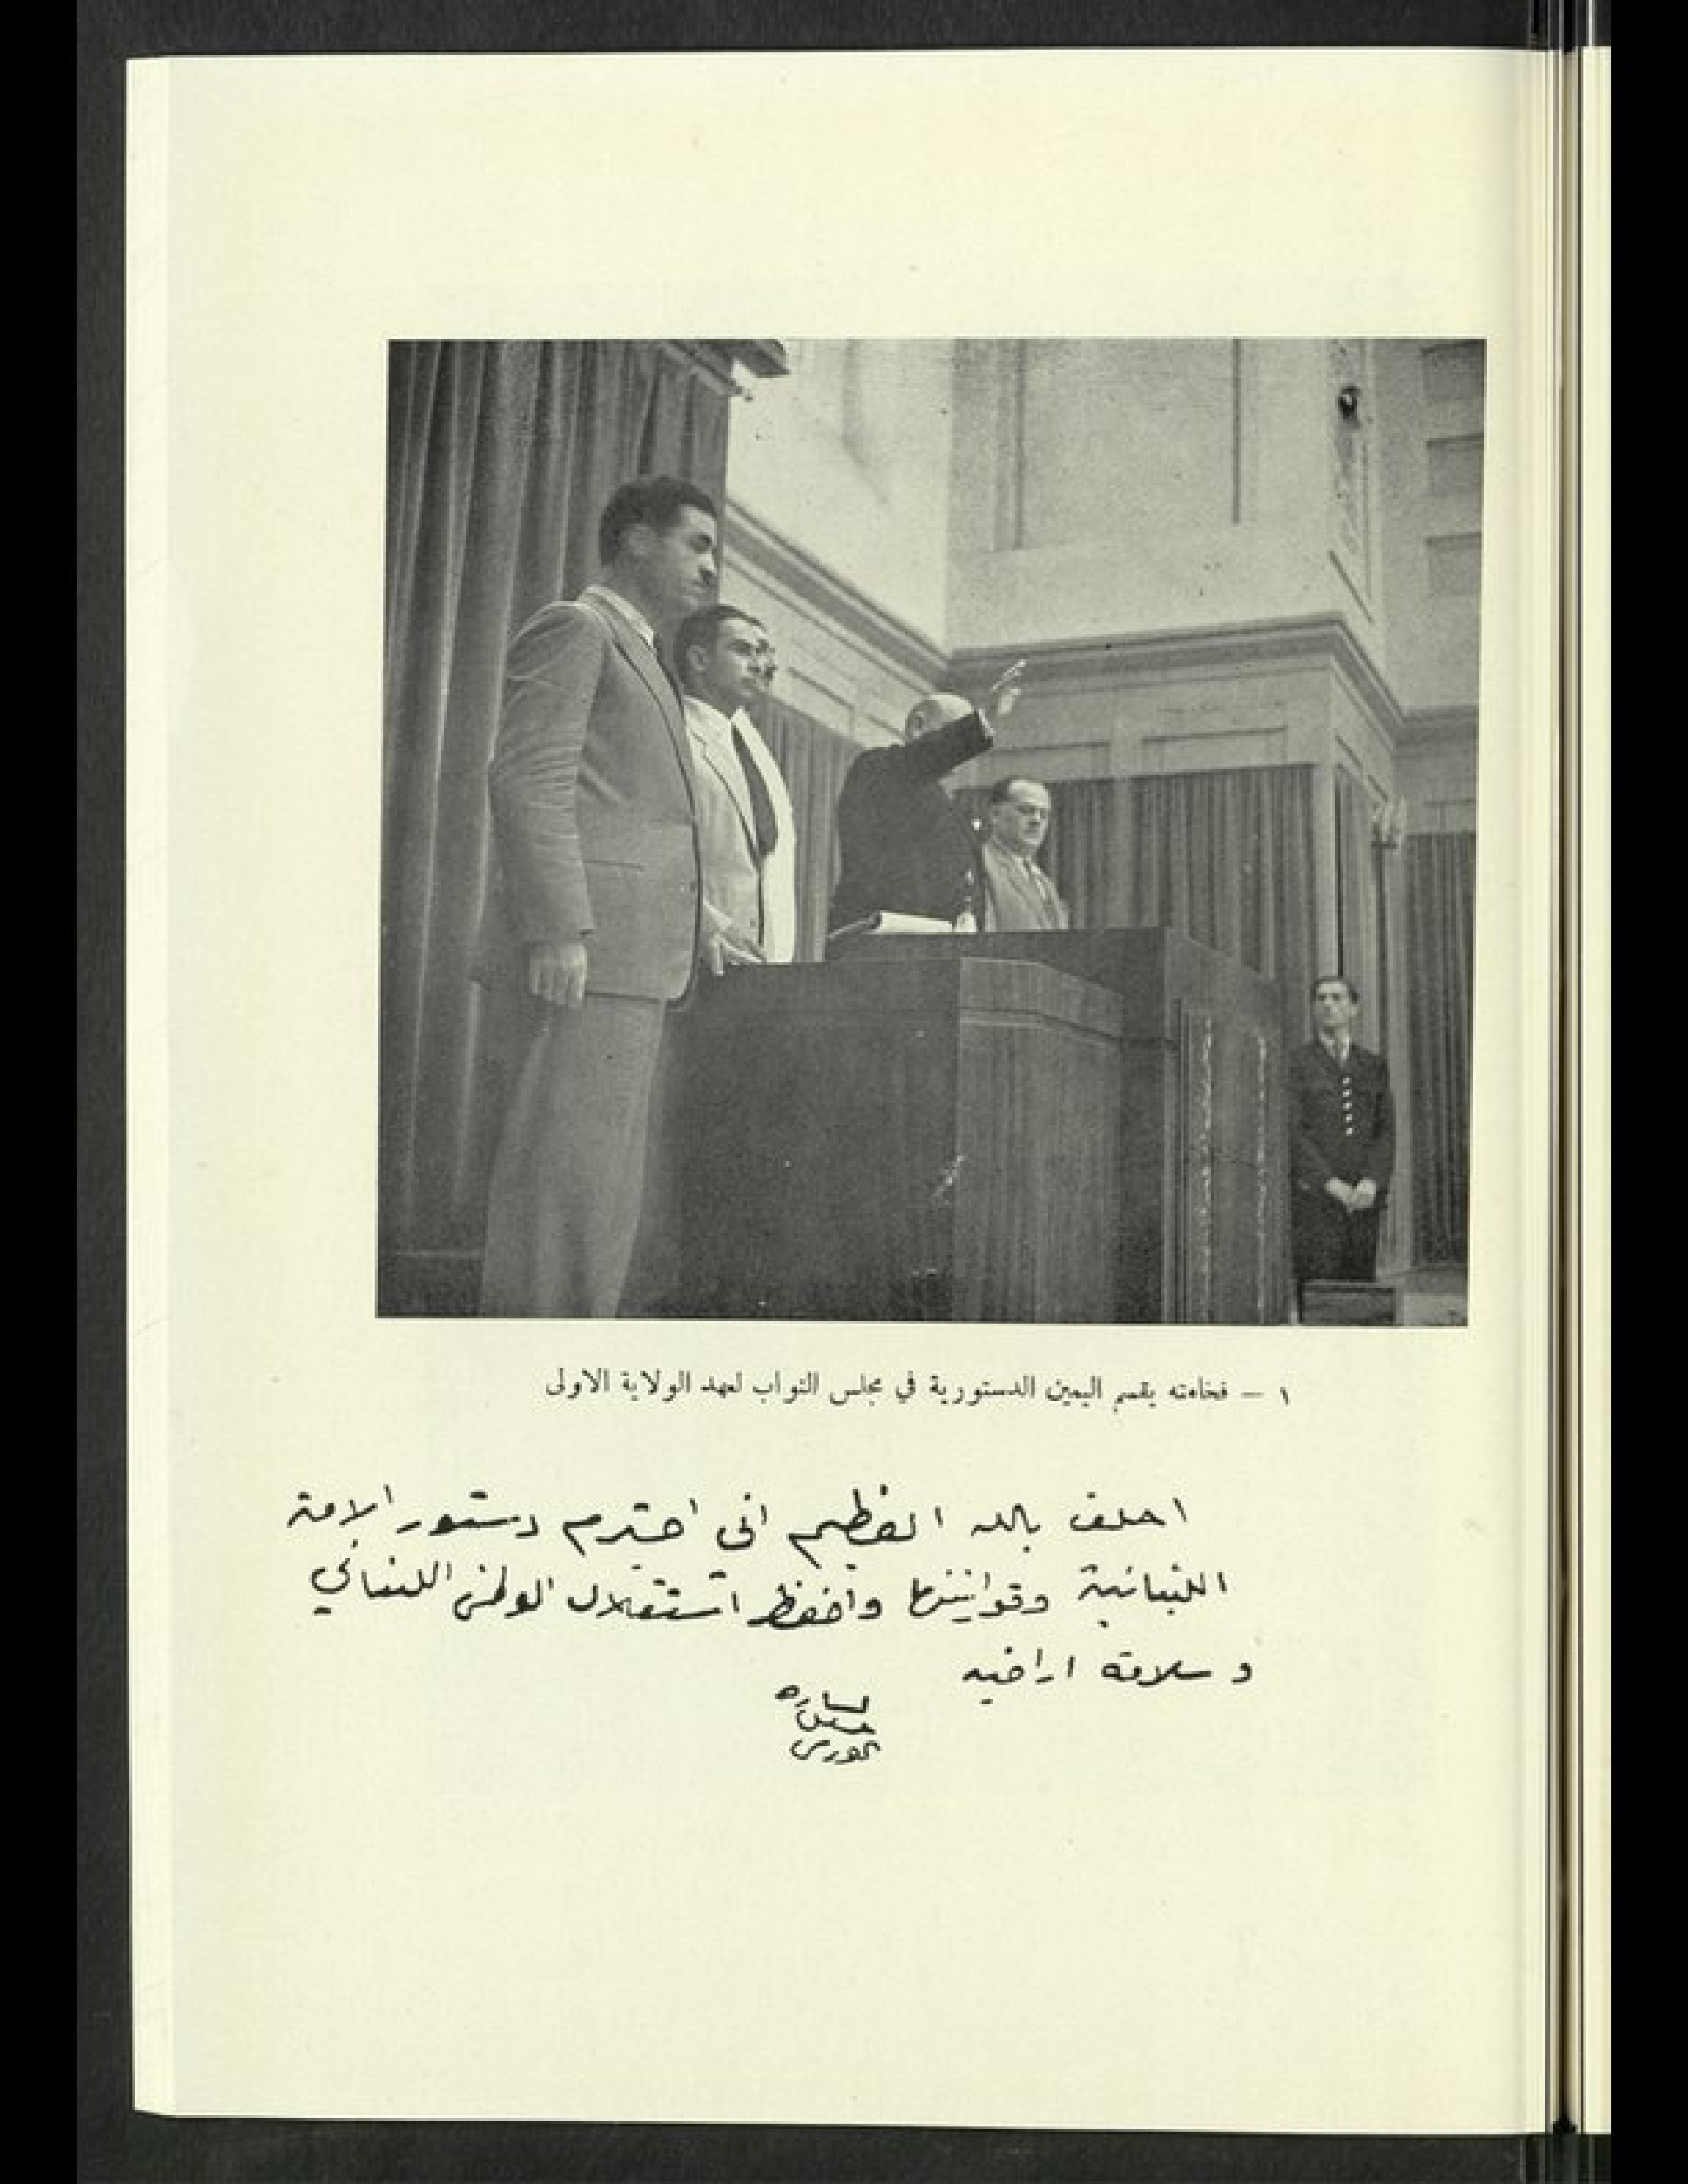 ١ — فخامته يقسم اليمين الدستورية في مجلس النواب لعهد الولاية الاولى
احلف بالله العظيم اني احترم دستور الامة
اللبنانية وقوانينها واحفظ استقلال الوطن اللبناني
وسلامة اراضيه
بشاره
خليل
الخوري